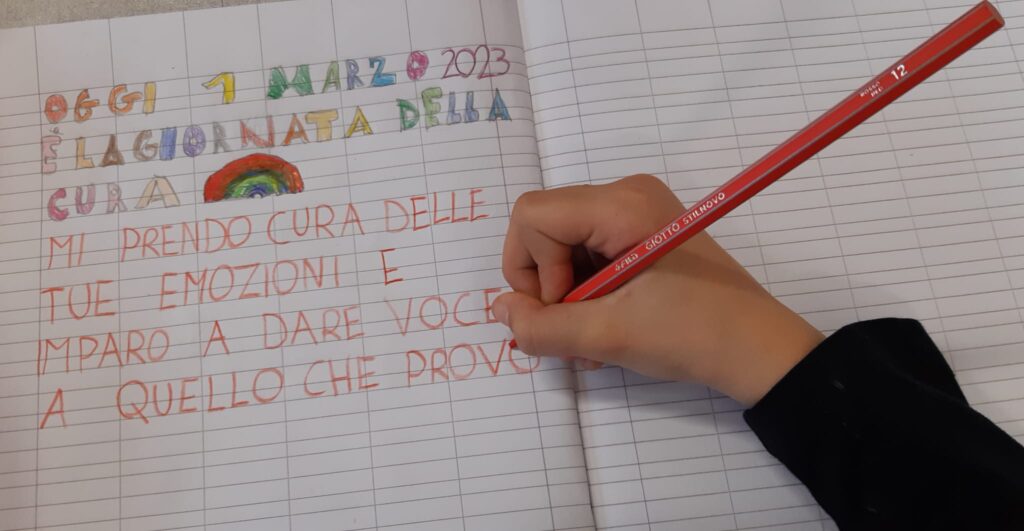 OGGI 1 MARZO 2023
È LA GIORNATA DELLA
CURA
MI PRENDO CURA DELLE
TUE EMOZIONI E
IMPARO A DARE VOCE
A QUELLO CHE PROVO
FILA GIOTTO STILNOVO
12